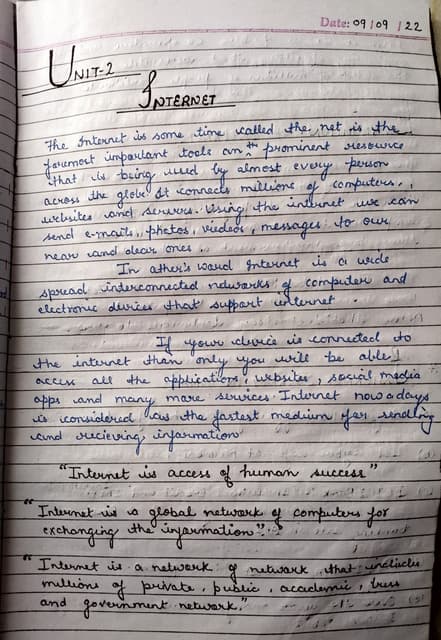 Date: 09/09/22
UNIT-2
INTERNET
The Internet is some time called the net is the
foremost important tools an the prominent resource
that is being used by almost every person
across the globe. It connects millions of computers,
websites and servers. Using the internet we can
send e-mails, photos, videos, messages to our
near and dear ones.
In other's word Internet is a wide
spread interconnected networks of computer and
electronic devices that support internet.
If your device is connected to
the internet than only you will be able
access all the applications, websites, social media
apps and many more services. Internet now a days
is considered as the fastest medium for sending
and recieving information
"Internet is access of human success"
"Internet is a global network of computers for
exchanging the information".
"Internet is a network of network that includes
millions of private, public, accademic,
and government network."